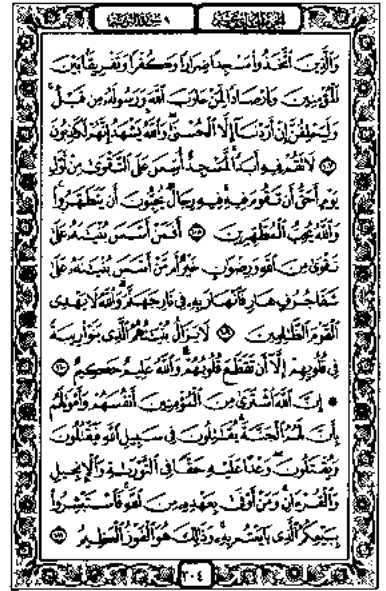 الجزء الحادي عشر ٩ سورة التوبة
وَٱلَّذِينَ ٱتَّخَذُوا۟ مَسْجِدًا ضِرَارًا وَكُفْرًا وَتَفْرِيقًۢا بَيْنَ
ٱلْمُؤْمِنِينَ وَإِرْصَادًا لِّمَنْ حَارَبَ ٱللَّهَ وَرَسُولَهُۥ مِن قَبْلُ ۚ
وَلَيَحْلِفُنَّ إِنْ أَرَدْنَآ إِلَّا ٱلْحُسْنَىٰ ۖ وَٱللَّهُ يَشْهَدُ إِنَّهُمْ لَكَـٰذِبُونَ
١٠٧ لَا تَقُمْ فِيهِ أَبَدًا ۚ لَّمَسْجِدٌ أُسِّسَ عَلَى ٱلتَّقْوَىٰ مِنْ أَوَّلِ
يَوْمٍ أَحَقُّ أَن تَقُومَ فِيهِ ۚ فِيهِ رِجَالٌ يُحِبُّونَ أَن يَتَطَهَّرُوا۟ ۚ
وَٱللَّهُ يُحِبُّ ٱلْمُطَّهِّرِينَ ١٠٨ أَفَمَنْ أَسَّسَ بُنْيَـٰنَهُۥ عَلَىٰ
تَقْوَىٰ مِنَ ٱللَّهِ وَرِضْوَٰنٍ خَيْرٌ أَم مَّنْ أَسَّسَ بُنْيَـٰنَهُۥ عَلَىٰ
شَفَا جُرُفٍ هَارٍ فَٱنْهَارَ بِهِۦ فِى نَارِ جَهَنَّمَ ۗ وَٱللَّهُ لَا يَهْدِى
ٱلْقَوْمَ ٱلظَّـٰلِمِينَ ١٠٩ لَا يَزَالُ بُنْيَـٰنُهُمُ ٱلَّذِى بَنَوْا۟ رِيبَةً
فِى قُلُوبِهِمْ إِلَّآ أَن تَقَطَّعَ قُلُوبُهُمْ ۗ وَٱللَّهُ عَلِيمٌ حَكِيمٌ ١١٠
۞ إِنَّ ٱللَّهَ ٱشْتَرَىٰ مِنَ ٱلْمُؤْمِنِينَ أَنفُسَهُمْ وَأَمْوَٰلَهُم
بِأَنَّ لَهُمُ ٱلْجَنَّةَ ۚ يُقَـٰتِلُونَ فِى سَبِيلِ ٱللَّهِ فَيَقْتُلُونَ
وَيُقْتَلُونَ ۖ وَعْدًا عَلَيْهِ حَقًّا فِى ٱلتَّوْرَىٰةِ وَٱلْإِنجِيلِ
وَٱلْقُرْءَانِ ۚ وَمَنْ أَوْفَىٰ بِعَهْدِهِۦ مِنَ ٱللَّهِ ۚ فَٱسْتَبْشِرُوا۟
بِبَيْعِكُمُ ٱلَّذِى بَايَعْتُم بِهِۦ ۚ وَذَٰلِكَ هُوَ ٱلْفَوْزُ ٱلْعَظِيمُ ١١١
٢٠٤